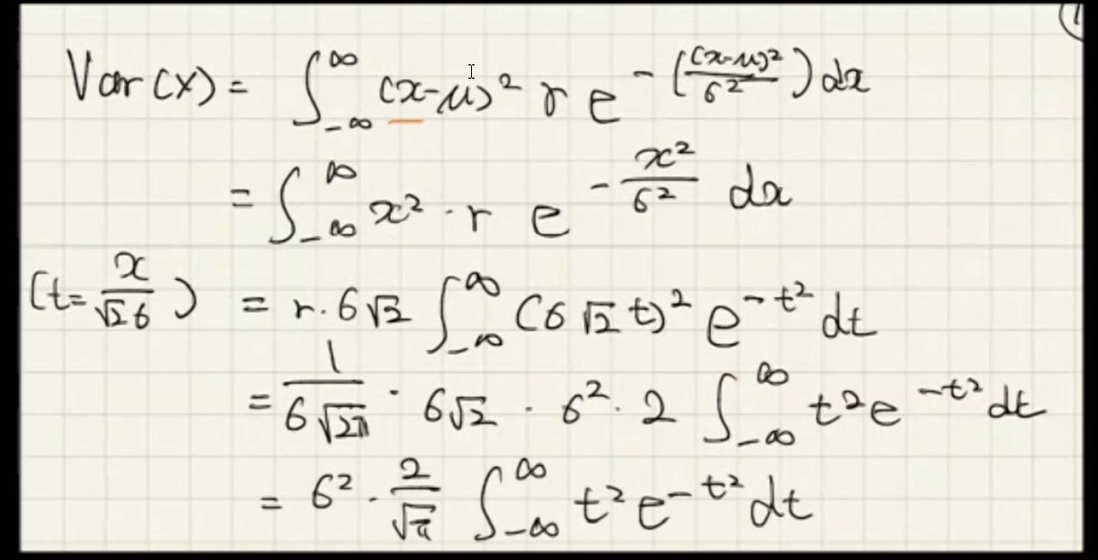 Var(X) = ∫_{-∞}^{∞} (x-μ)² r e^{-((x-μ)²/σ²)} dx
= ∫_{-∞}^{∞} x² · r e^{-x²/σ²} dx
(t = x/(√2σ)) = r · σ√2 ∫_{-∞}^{∞} (σ√2 t)² e^{-t²} dt
= 1/(σ√(2π)) · σ√2 · σ² · 2 ∫_{-∞}^{∞} t² e^{-t²} dt
= σ² · 2/√π ∫_{-∞}^{∞} t² e^{-t²} dt